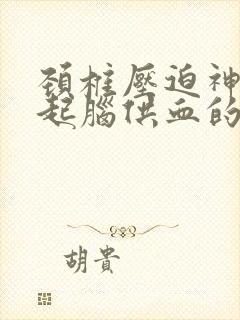 頚椎壓迫神
起腦供血的
胡貴